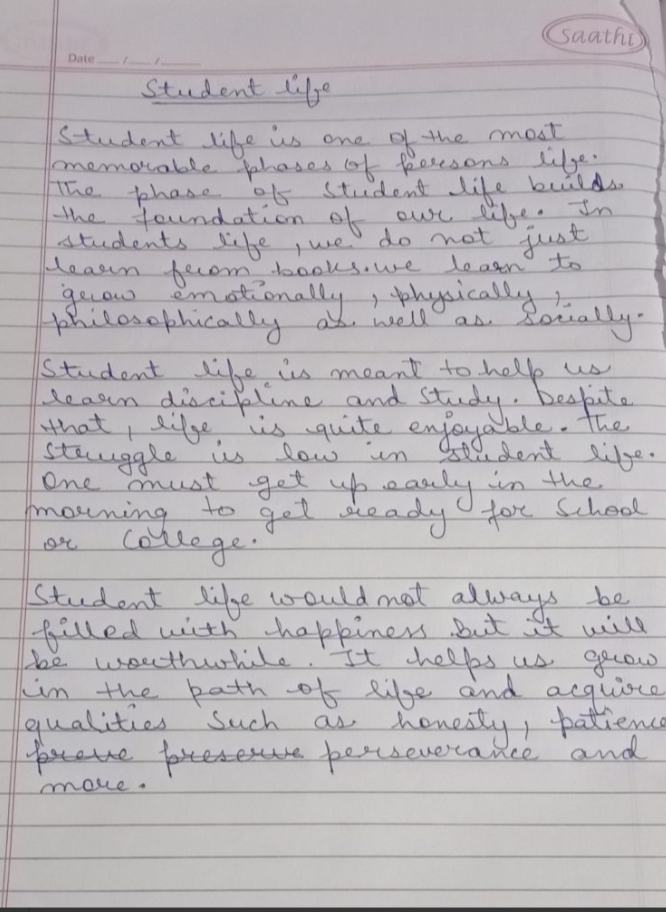 saathi
Date __/__/____
Student life
Student life is one of the most
memorable phases of persons life.
The phase of student life builds
the foundation of our life. In
students life, we do not just
learn from books. we learn to
grow emotionally, physically,
philosophically as well as socially.
Student life is meant to help us
learn discipline and study. Despite
that, life is quite enjoyable. The
struggle is low in student life.
One must get up early in the
morning to get ready for School
or College.
Student life would not always be
filled with happiness but it will
be worthwhile. It helps us grow
in the path of life and acquire
qualities such as honesty, patience
preserve perseverance and
more.